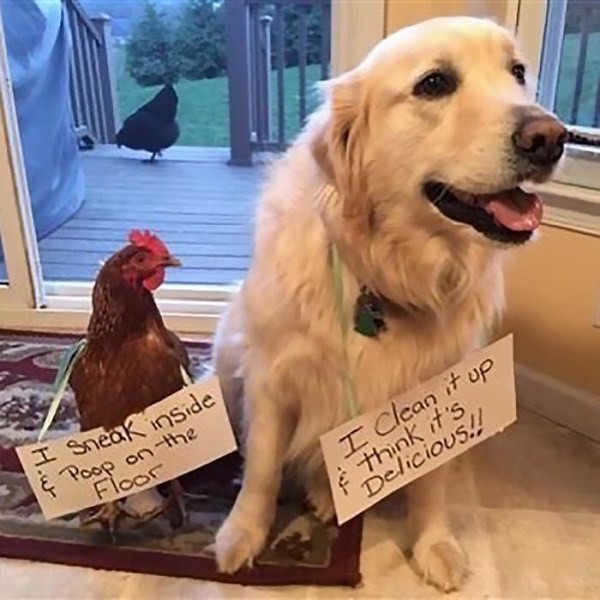 I sneak inside
& Poop on the
Floor
I Clean it up
& think it's
Delicious!!